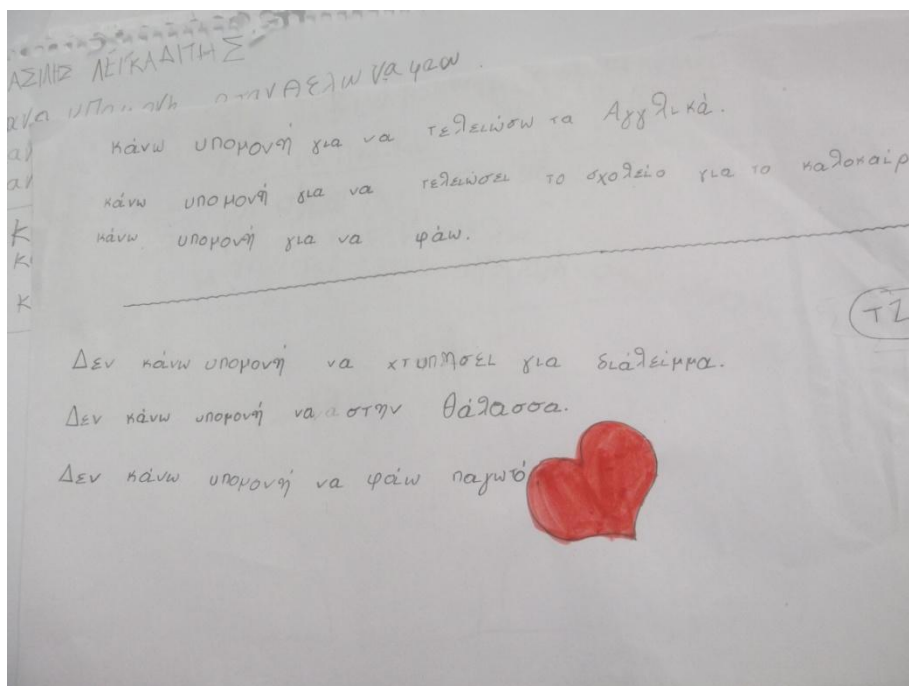 ΛΕΙΚΑΔΙΤΗΣ
θέλω να φάω.
κάνω υπομονή για να τελειώσω τα Αγγλικά.
κάνω υπομονή για να τελειώσει το σχολείο για το καλοκαίρ
κάνω υπομονή για να φάω.
ΤΖ
Δεν κάνω υπομονή να χτυπήσει για διάλειμμα.
Δεν κάνω υπομονή να στην θάλασσα.
Δεν κάνω υπομονή να φάω παγωτό